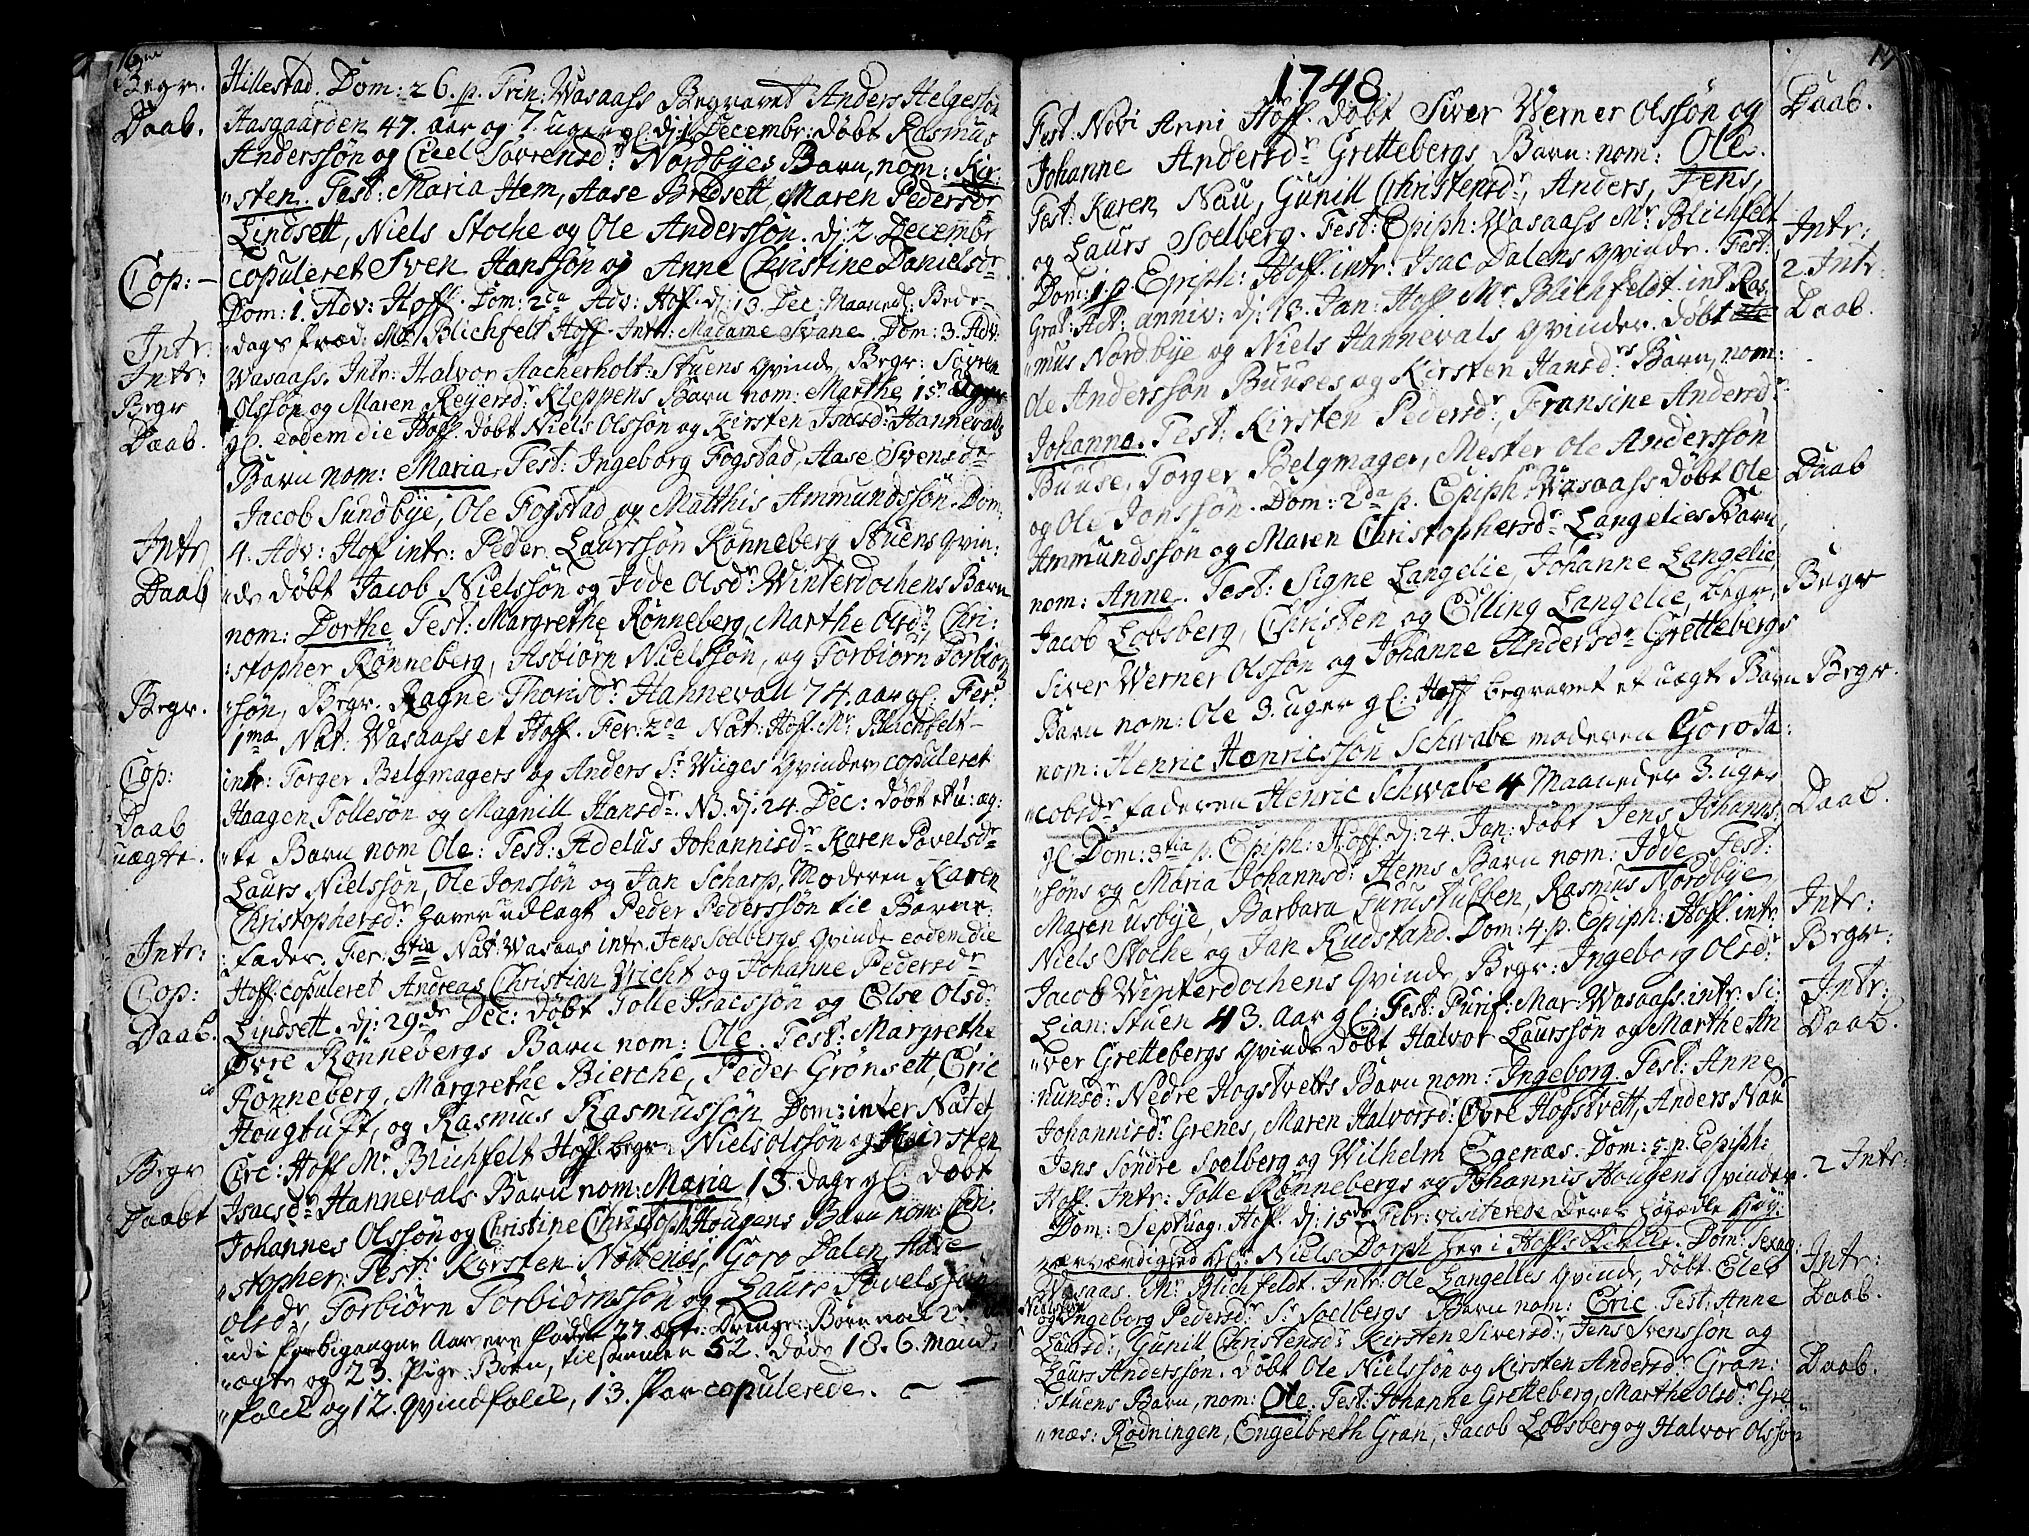 16
Begr.
Daab.
Cop:
Intr:
Intr:
Begr
Daab.
Intr
Daab
Begr.
Cop:
Daab
uægte.
Intr:
Cop:
Daab.
Begr
Daabt
Hillestad. Dom: 26. p. Trin: Wasaass Begravet Anders Helgessøn
Aasgaarden 47. aar og 7. uger gl. dj: Decembr: døbt Rasmus
Anderssøn og Citel Sørrensdr. Nordbyes Barn, nom: Kir-
sten. Test: Maria Hem, Aase Bredsett, Maren Pedersdr
Lindsett, Niels Stoche og Ole Anderssøn. dj 2 Decembr
copuleret Sven Hanssøn og Anne Christine Danielsdr.
Dom: 1. Adv: Hoff. Dom: 2da Adv: Hoff. dj: 13. Dec: Maanedl. Bede-
dags Præd: Mr. Blichfelt Hoff. Intr: Madame Svane. Dom: 3. Adv:
Wasaass. Intr: Halvor Aacherholt: Stuens qvinde, Begr: Sørren
Olssøn og Maren Reyersdr Kleppens Barn nom: Marthe 15 Uger
gl. eodem die Hoff. døbt Niels Olssøn og Kirsten Isacsdr: Hannevals
Barn nom: Maria. Test: Ingeborg Fogstad, Aase Svensdr
Jacob Sundbye, Ole Fogstad og Matthis Ammundssøn. Dom:
4. Adv: Hoff intr: Peder Laurssøn Rønneberg Stuens qvin-
de døbt Jacob Nielssøn og Idde Olsdr: Winterdochens Barn
nom: Dorthe. Test: Margrethe Rønneberg, Marthe Olsdr, Chri-
stopher Rønneberg, Asbiørn Nielssøn, og Torbiørn Torbiørn
søn, Begr. Ragne Thorisdr. Hannevall 74. aar gl. Fer:
1ma Nat: Wasaass et Hoff. Fer: 2da Nat: Hoff. Mr. Blichfelt
intr: Torger Belgmagers og Anders Sr. Wiiges qvinder copuleret
Haagen Tollesøn og Magnill Hansdr. N3. dj: 24. Dec: døbt et u:æg:
te Barn nom Ole: Test: Adelus Johannisdr Karen Pavelsdr
Laurs Nielssøn, Ole Jonssøn og Jan Scharp, Moderen Karen
Christophersdr haver udlagt Peder Pederssøn til Barne-
fader. Fer: 3tia Nat: Wasaas intr: Jens Soelbergs qvinde eodem die
Hoff: copuleret Andreas Christian Vricht og Johanne Pedersdr
Lindsett. dj: 29de Dec: døbt Tolle Isacssøn og Else Olsdr:
Øvre Rønnebergs Barn nom: Ole. Test: Margrethe
Rønneberg, Margrethe Bierche, Peder Grønsett, Eric
Hougtuft, og Rasmus Rasmussøn Dom: inter Nat et
Circ: Hoff Mr. Blichfelt Hoff. begr: Niels Olssøn og Kirsten
Isacsdr Hannevals Barn nom: Maria 13. dage gl. døbt
Johannes Olssøn og Christine Christoph: Hougens Barn nom: Chri-
stopher: Test: Kirsten Nøttenes, Goro Dalen, Aase
Olsdr, Torbiørn Torbiørnssøn og Laurs Povelssøn
udi forbigangne Aar ere føde 27 ægte: Drenge: Børn no: 2
ægte og 23. Pige: Børn, tilsammen 52. døde 18. 6. mand-
folck og 12. qvindfolck, 13. Par copulerede.
17
1748
Fest: Novi Anni Hoff. døbt Siver Werner Olssøn og
Johanne Andersdr Grettebergs Barn: nom: Ole.
Test: Karen Nau, Gunill Christensdr, Anders, Jens,
og Laurs Soelberg. Fest: Epiph: Wasaass Mr. Blichfelt
Dom: 1. p Epiph: Hoff. intr: Isac Dalens qvinde. Fest:
Grat: Act: anniv: dj: 13. Jan: Hoff Mr. Blichfeldt. int Ras
mus Nordbye og Niels Hannevals qvinder. døbt
Ole Anderssøn Buuses og Kirsten Hansdrs Barn, nom:
Johanna. Test: Kirsten Pedersdr, Fransine Andersdr
Buuse, Torger Belgmager, Mester Ole Anderssøn
og Ole Jonssøn. Dom: 2da p. Epiph Wasaass døbt Ole
Ammundssøn og Maren Christophersdr Langelies Barn,
nom: Anne. Test: Signe Langelie, Johanne Langelie
Jacob Lobsberg, Christen og Elling Langelie, begr:
Siver Werner Olssøn og Johanne Andersdr Grettebergs
Barn nom: Ole 3. uger gl: Hoff begravet et uægte Barn
nom: Henric Henricssøn Schwabe moderen Goro Ja:
cobsdr faderen Henric Schwabe 4 Maaneder 3. uger
gl. Dom: 3tia p. Epiph: Hoff. dj: 24. Jan: døbt Jens Johanns-
søns og Maria Johannsdr: Hems Barn nom: Idde. Test:
Maren Usbye, Barbara Lurustubben, Rasmus Nordbye
Niels Stoche og Jan Rudstand. Dom: 4. p. Epiph: Hoff. intr
Jacob Winterdochens qvinde, Begr: Ingeborg Olsdr
Lian: Stuen 43. Aar gl: Fest: Purif: Mar: Wasaass. intr: Si-
ver Grettebergs qvinde døbt Halvor Laurssøn og Marthe An
nunsdr: Nedre Hogstvetts Barn nom: Ingeborg. Test: Anne
Johannisdr Grenes, Maren Halvorsdr: Øvre Hogstvett, Anders Nau
Jens Søndre Soelberg og Wilhelm Egenæs. Dom: 5. p. Epiph:
Hoff Intr: Tolle Rønnebergs og Johannis Hougens qvinder
Dom: Septuag. Hoff. dj: 15de Febr: visiterede Deres Høyædle Høy-
værværdighed Hr: Niels Dorph her i Hoffs Kirche. Dom: Sexag:
Wasaas. Mr. Blichfeldt. Intr: Ole Langelies qvinde, døbt Elev
Nielssøn
og Ingeborg Pedersdr. Sr. Soelbergs Barn nom: Eric. Test: Anne
Laursdr, Gunill Christensdr Kirsten Siversdr, Jens Svenssøn og
Laurs Anderssøn. døbt Ole Nielssøn og Kirsten Andersdr Gran:
Stuens Barn, nom: Ole. Test: Johanne Gretteberg, Marthe Olsdr Gre-
næs: Rødningen, Engelbreth Gran, Jacob Lobsberg og Halvor Olssøn
Daab.
Intr:
2 Intr.
Daab.
Daab
Begr
Begr.
Daab.
Intr:
Begr:
Intr:
Daab.
2 Intr:
Intr:
Daab.
Daab.